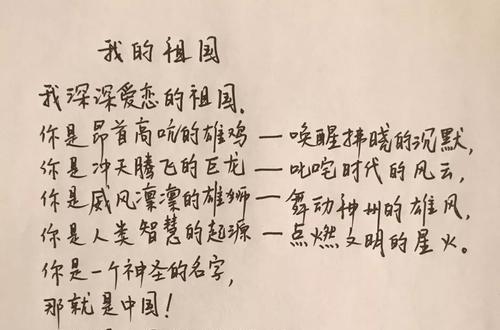 我的祖国
我深深爱恋的祖国。
你是昂首高吭的雄鸡—唤醒拂晓的沉默,
你是冲天腾飞的巨龙—叱咤时代的风云,
你是威风凛凛的雄狮—舞动神州的雄风,
你是人类智慧的起源—点燃文明的星火。
你是一个神圣的名字,
那就是中国!